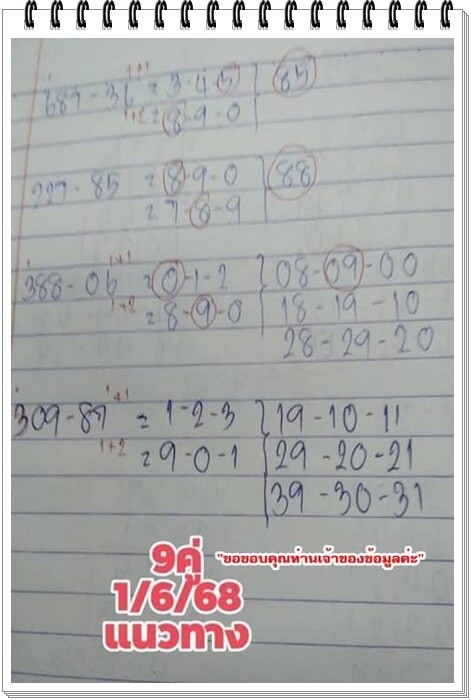 1+1
687-36 = 3-4-5 85
1+2 = 8-9-0
227-85 = 8-9-0 88
= 7-8-9
1+1
388-06 = 0-1-2 08-09-00
1+2 = 8-9-0 18-19-10
28-29-20
1+1
309-87 = 1-2-3 19-10-11
1+2 = 9-0-1 29-20-21
39-30-31
9คู่ "ขอขอบคุณท่านเจ้าของข้อมูลค่ะ"
1/6/68
แนวทาง